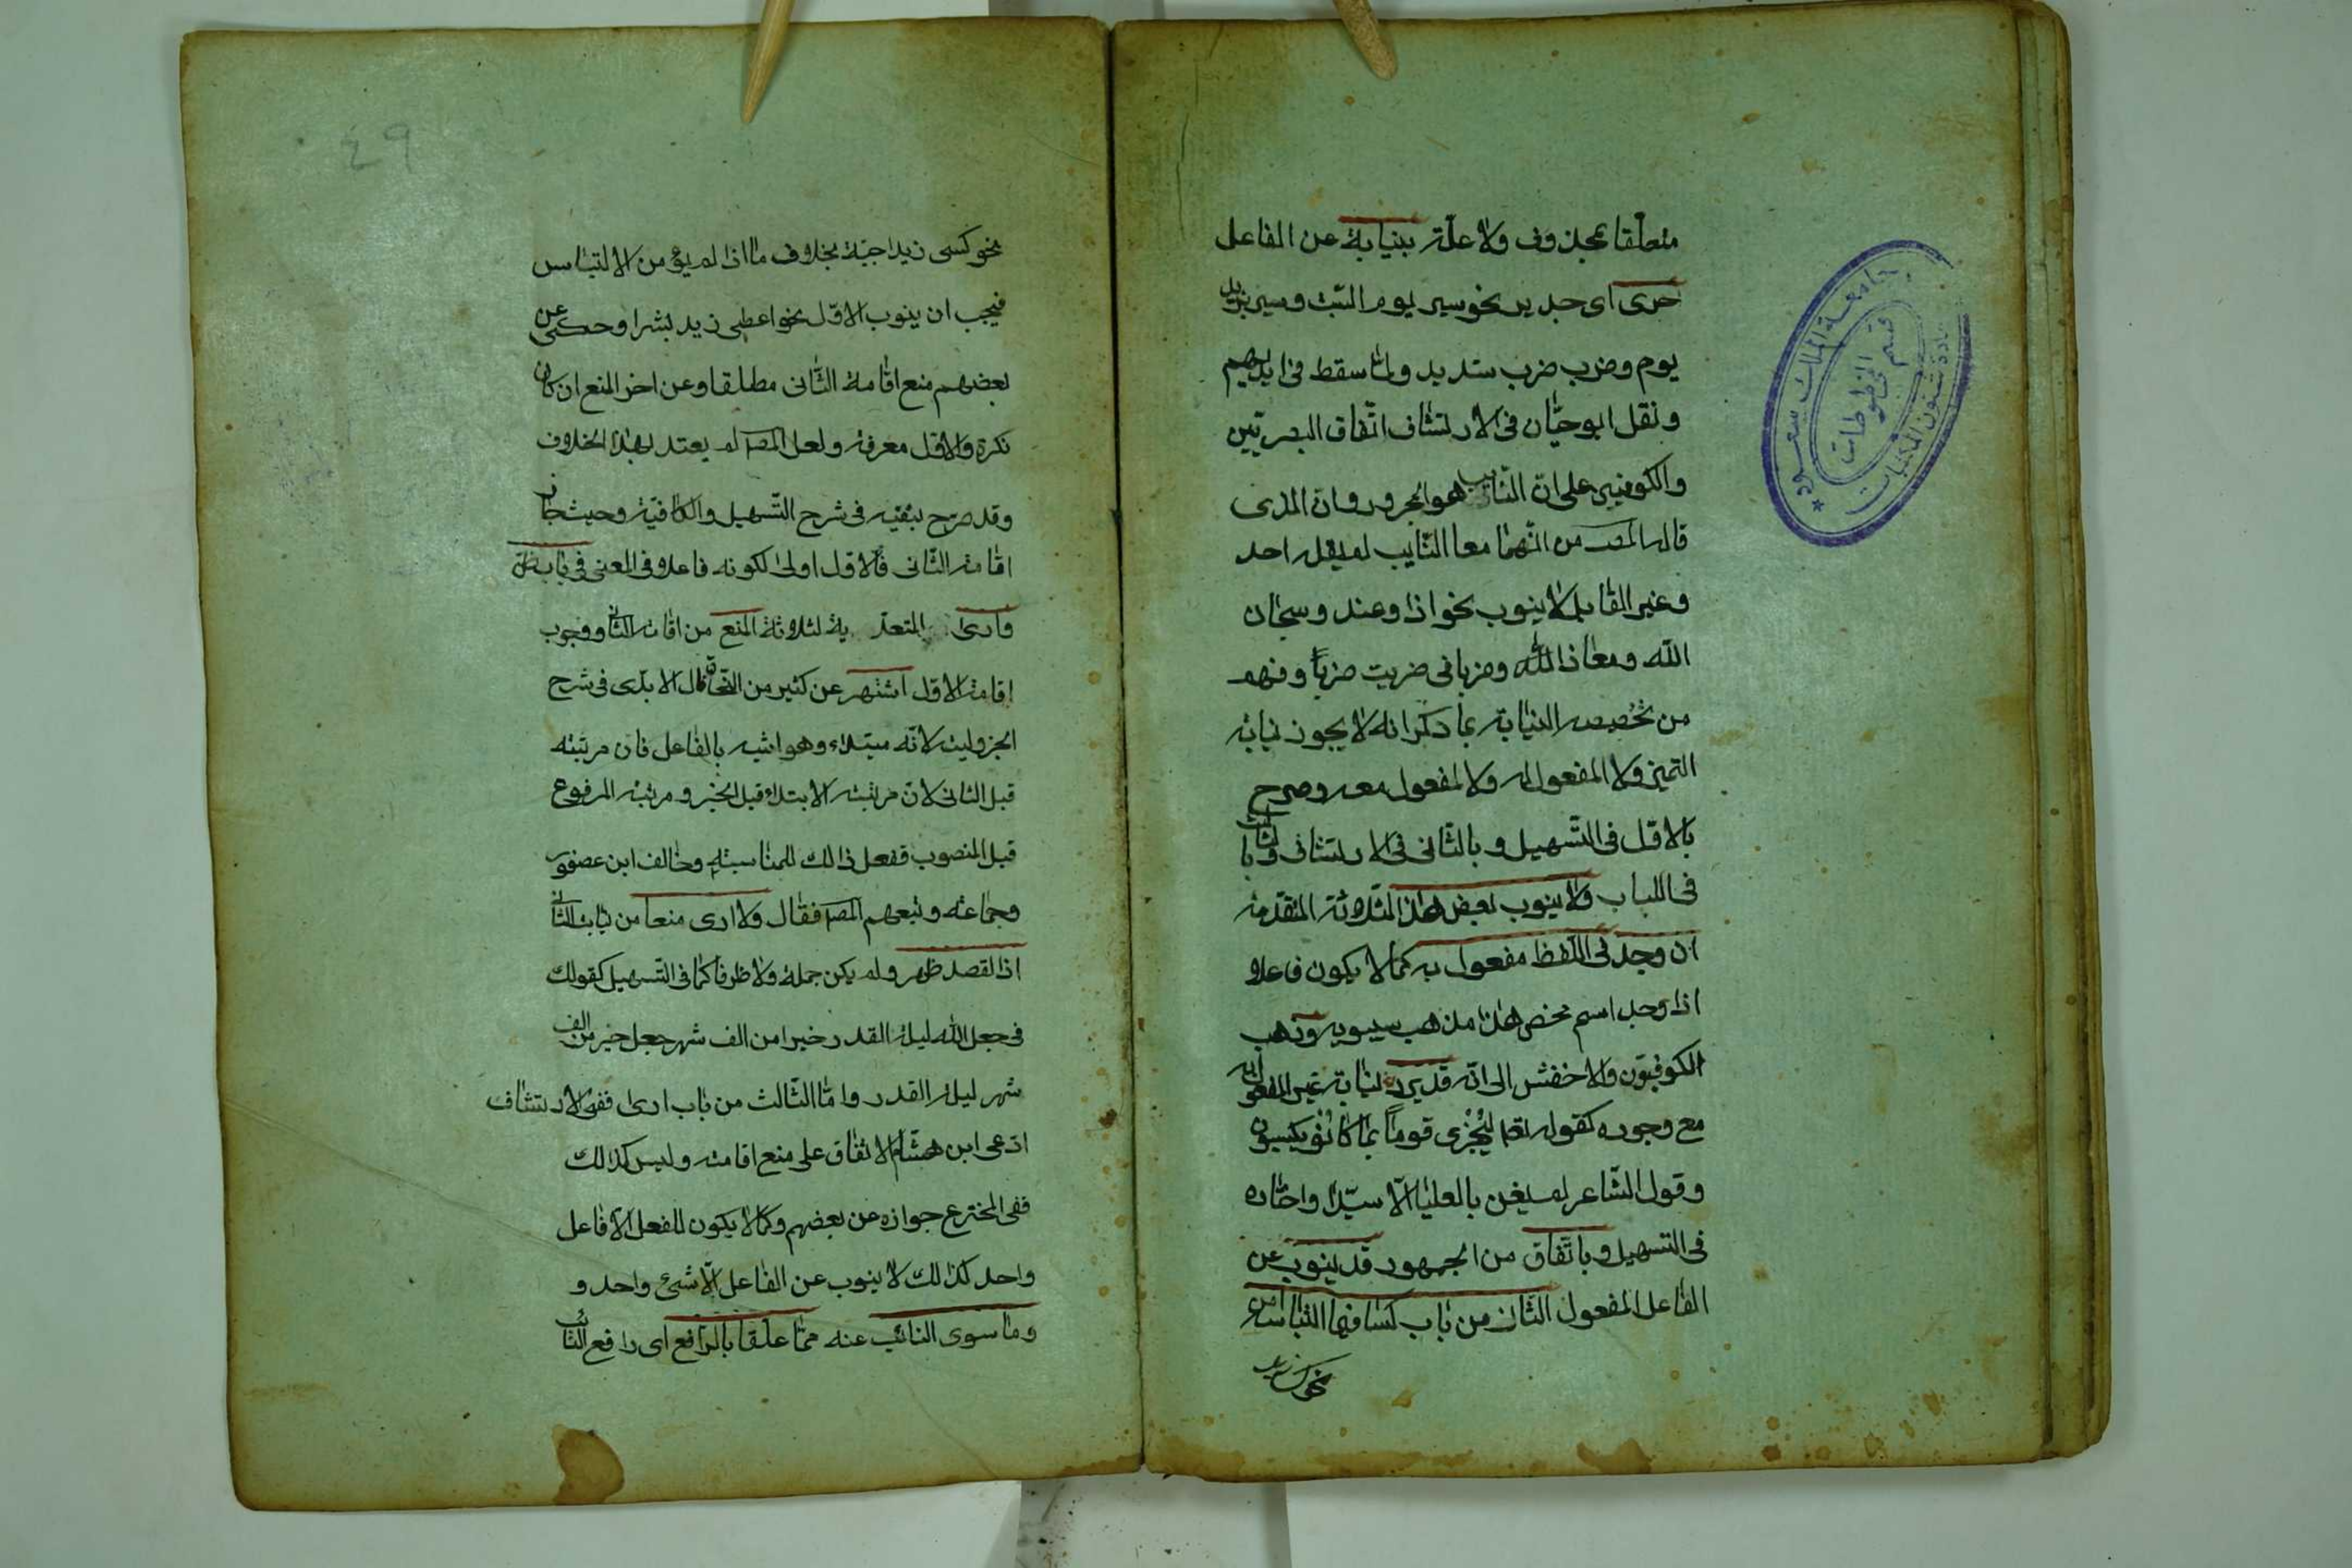 متعلقا بمحذوف ولا علة بنيابة عن الفاعل
حرى اى جدير نحو سير يوم السبت وسير بزيد
يوم وضرب ضرب شديد ولما سقط فى ايديهم
ونقل ابو حيّان فى الارتشاف اتّفاق البصريّين
والكوفيين على انّ النائب هو المجرور وانّ الذى
قاله المصـ من انّهما معا النّايب لم يقله احد
وغير القابل لا ينوب نحو اذا وعند وسبحان
الله ومعاذ الله وضربا فى ضربت ضرباً وفهم
من تخصيصه النيابة بما ذكر انه لا يجوز نيابة
التميز ولا المفعول له ولا المفعول معه وصرح
بالاوّل فى التّسهيل وبالثّانى فى الارتشاف وبالثالث
فى اللباب ولا ينوب بعض هذا الثّلاثة المتقدّمة
ان وجد فى اللّفظ مفعول به كما لا يكون فاعلا
اذا وجد اسم محض هذا مذهب سيبويه وذهب
الكوفيّون والاخفش الى انّه قد يرد نيابة غير المفعول به
مع وجوده كقوله تعا لِيُجْزى قوماً بما كانُوا يكسبون
وقول الشّاعر لم يعن بالعليا الّا سيّدا واختاره
فى التسهيل وباتّفاق من الجمهور قد ينوب عن
الفاعل المفعول الثّان من باب كسا فيما التباسه امن
نحو كسى زيد
٤٩
نحو كسى زيدا جبّة بخلاف ما اذا لم يؤمن الالتباس
فيجب ان ينوب الاوّل نحو اعطى زيد بشرا وحكى عن
بعضهم منع اقامة الثّانى مطلقا وعن اخر المنع ان كان
نكرة والاوّل معرفة ولعل المصـ لم يعتد بهذا الخلاف
وقد صرح بنفيه فى شرح التّسهيل والكافية وحيث جاز
اقامة الثّانى فالاوّل اولى لكونه فاعلا فى المعنى فى باب ظنّ
وارى المتعدّية لثلاثة المنع من اقامة الثّانى ووجوب
اقامة الاوّل اشتهر عن كثير من النّحاة قال الابدّى فى شرح
الجزولية لانّه مبتداء وهو اشبه بالفاعل فان مرتبته
قبل الثانى لانّ مرتبة الابتداء قبل الخبر ومرتبة المرفوع
قبل المنصوب ففعل ذالك للمناسبة وخالف ابن عصفور
وجماعة وتبعهم المصـ فقال ولا ارى منعا من نيابة الثّانى
اذا القصد ظهر ولم يكن جملة ولا ظرفا كما فى التّسهيل كقولك
فى جعل الله ليلة القدر خيرا من الف شهر جعل خير من الف
شهر ليلة القدر وامّا الثّالث من باب ارى ففى الارتشاف
ادّعى ابن هشام الاتفاق على منع اقامته وليس كذالك
ففى المخترع جوازه عن بعضهم وكما لا يكون للفعل الّا فاعل
واحد كذالك لا ينوب عن الفاعل الّا شئ واحد و
وما سوى النائب عنه ممّا علّقا بالرّافع اى رافع النّائب
جامعة الملك سعود
عمادة شئون المكتبات
قسم المخطوطات